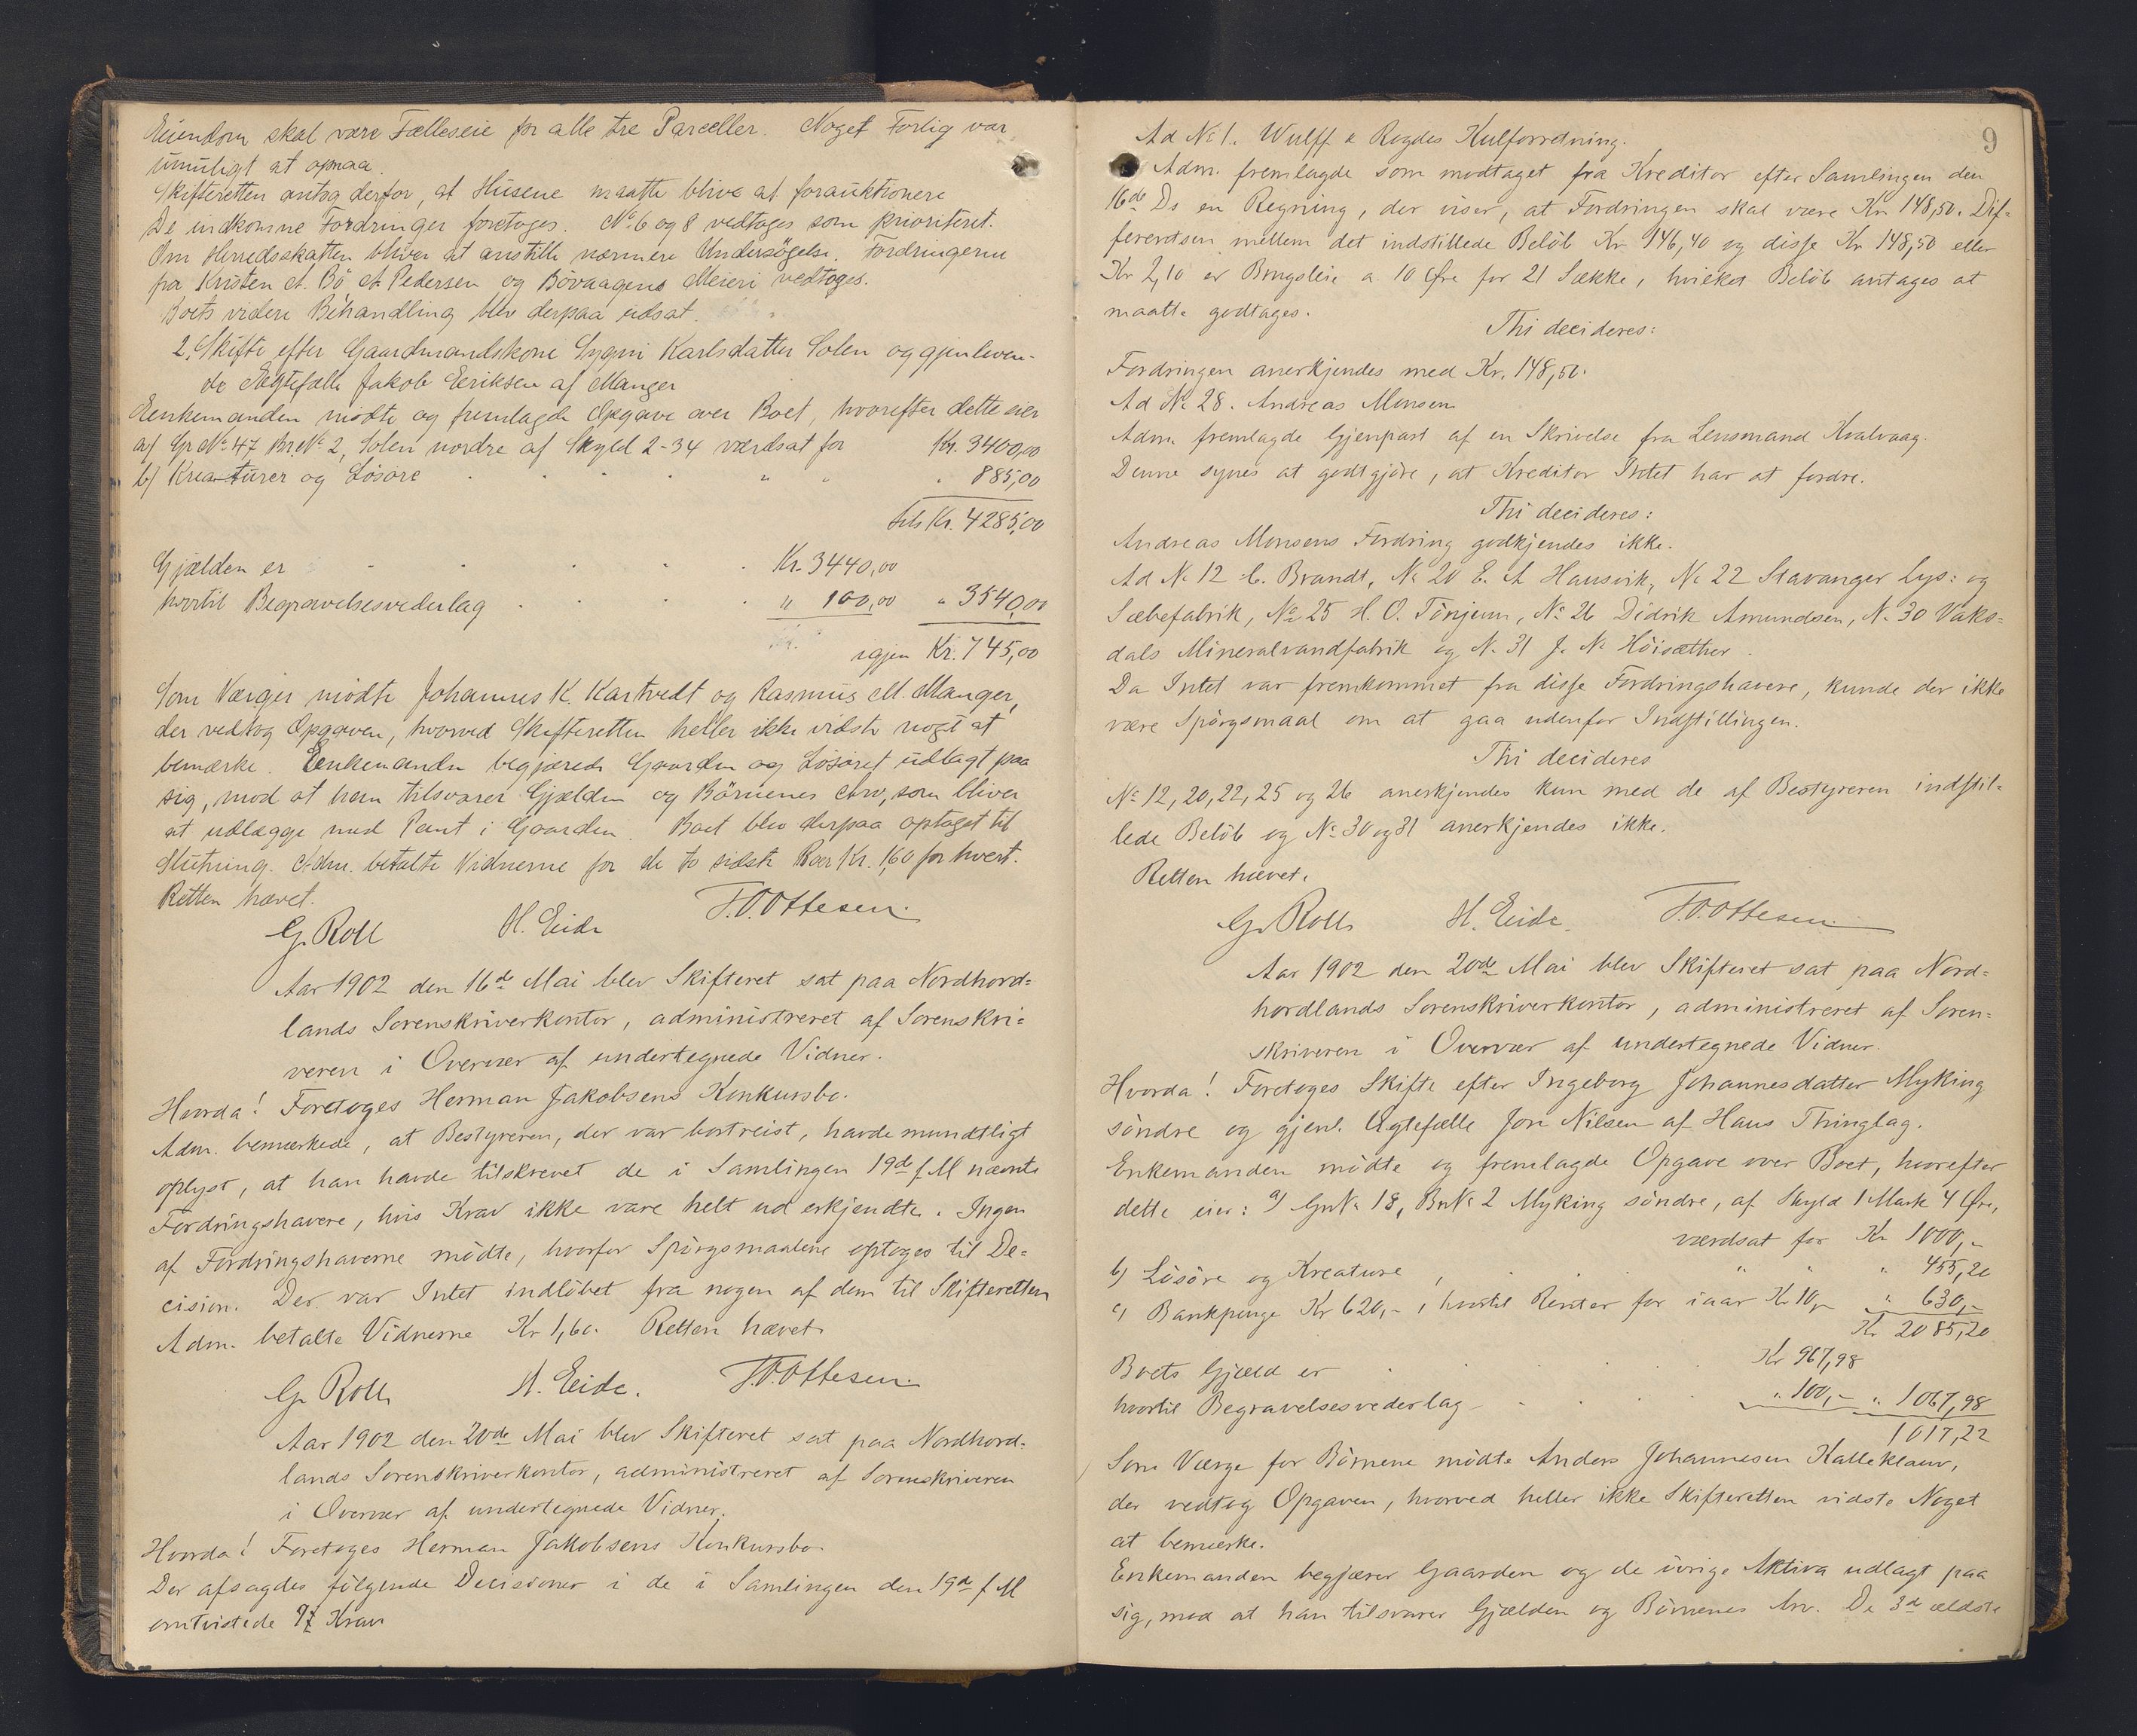 Eiendom skal være Fælleseie for alle tre Parceller. Noget Forlig var
umuligt at opnaa.
Skifteretten antog derfor, at Husene maatte blive at forauktionere
De indkomne Fordringer foretoges. No 6 og 8 vedtoges som prioriteret.
Om Herredsskatten bliver at anstille nærmere Undersögelse. Fordringerne
fra Kristen A. Bö A Pedersen og Bövaagens Meieri vedtoges.
Boets videre Behandling blev derpaa udsat.
2, Skifte efter Gaardmandskone Sygni Karlsdatter Solen og gjenleven-
de Ægtefælle Jakob Eeriksen af Manger
Eenkemanden mödte og fremlagde Opgave over Boet, hvorefter dette eier
a) Gr No 47 Br No 2, Solen nordre af Skyld 2-34 værdsat for Kr. 3400,00
b) Kreaturer og Lösöre " " " 885,00
tils Kr. 4285,00
Gjælden er Kr. 3440,00
hvortil Begravelsesvederlag " 100,00 " 3540,00
igjen Kr. 745,00
Som Værger mödte Johannes K. Kartvedt og Rasmus M. Manger,
der vedtog Opgaven, hvorved Skifteretten heller ikke vidste noget at
bemærke. Eenkemanden begjærede Gaarden og Lösöret udlagt paa
sig, mod at han tilsvarer Gjælden og Börnenes Arv, som bliver
at udlægge med Pant i Gaarden. Boet blev derpaa optaget til
Slutning. Adm. betalte Vidnerne for de to sidste Boer Kr. 1,60 for hvert.
Retten hævet.
G. Roll H. Eide T.O. Ottesen.
Aar 1902 den 16de Mai blev Skifteret sat paa Nordhord=
lands Sorenskriverkontor, administreret af Sorenskri=
veren i Overvær af undertegnede Vidner.
Hvorda! Foretoges Herman Jakobsens Konkursbo.
Adm. bemærkede, at Bestyreren, der var bortreist, havde mundtligt
oplyst, at han havde tilskrevet de i Samlingen 19de f. M nævnte
Fordringshavere, hvis Krav ikke vare helt ud erkjendte. Ingen
af Fordringshaverne mödte, hvorfor Spörgsmaalene optoges til De=
cision. Der var Intet indlöbet fra nogen af dem til Skifteretten
Adm. betalte Vidnerne Kr 1,60. Retten hævet.
G. Roll H. Eide. T.O. Ottesen.
Aar 1902 den 20de Mai blev Skifteret sat paa Nordhord=
lands Sorenskriverkontor, administreret af Sorenskriveren
i Overvær af undertegnede Vidner.
Hvorda! Foretoges Herman Jakobsens Konkursbo
Der afsagdes fölgende Decisioner i de i Samlingen den 19de f M
omtvistede Krav
9
Ad No 1. Wulff & Rogdes Kulforretning.
Adm. fremlagde som modtaget fra Kreditor efter Samlingen den
16de Ds en Regning, der viser, at Fordringen skal være Kr 148,50. Dif=
ferentsen mellem det indstillede Belöb Kr 146,40 og disse Kr 148,50 eller
Kr 2,10 er Brugsleie a 10 Øre for 21 Sække, hvilket Belöb antages at
maatte godtages.
Thi decideres:
Fordringen anerkjendes med Kr. 148,50.
Ad No 28. Andreas Monsen
Adm. fremlagde Gjenpart af en Skrivelse fra Lensmand Kvalvaag.
Denne synes at godtgjöre, at Kreditor Intet har at fordre.
Thi decideres:
Andreas Monsens Fordring godkjendes ikke.
Ad No 12 C. Brandt, No 20 E. A Hausvik, No 22 Stavanger Lys= og
Sæbefabrik, No 25 H. O. Tönjum, No 26 Didrik Amundsen, No 30 Vaks=
dals Mineralvandfabrik og No 31 J. N. Höisæther.
Da Intet var fremkommet fra disse Fordringshavere, kunde der ikke
være Spörgsmaal om at gaa udenfor Indstillingen.
Thi decideres
No 12, 20, 22, 25 og 26 anerkjendes kun med de af Bestyreren indstil=
lede Belöb og No 30 og 31 anerkjendes ikke.
Retten hævet.
G. Roll H. Eide. T.O. Ottesen
Aar 1902 den 20de Mai blev Skifteret sat paa Nord=
hordlands Sorenskriverkontor, administreret af Soren=
skriveren i Overvær af undertegnede Vidner.
Hvorda! Foretoges Skifte efter Ingeborg Johannesdatter Myking
söndre og gjenl. Ægtefælle Jon Nilsen af Haus Thinglag.
Enkemanden mödte og fremlagde Opgave over Boet, hvorefter
dette eier: a) Gr No 18, Br No 2 Myking söndre, af Skyld 1 Mark 4 Øre,
værdsat for Kr 1000,-
b) Lösöre og Kreature , " " " 455,20
c) Bankpenge Kr 620,-, hvortil Renter for iaar Kr 10,- " 630,-
Kr 2085,20
Boets Gjæld er Kr 967,98
hvortil Begravelsesvederlag " 100,- " 1067,98
1017,22
Som Værge for Börnene mödte Anders Johannesen Kalleklauv,
der vedtog Opgaven, hvorved heller ikke Skifteretten vidste Noget
at bemærke.
Enkemanden begjærer Gaarden og de övrige Aktiva udlagt paa
sig, mod at han tilsvarer Gjælden og Börnenes Arv. De 3de ældste